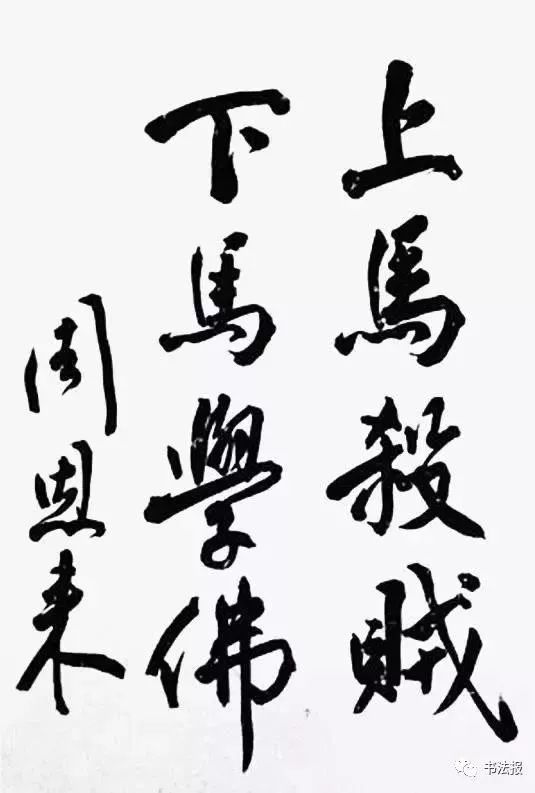 上馬殺賊
下馬學佛
周恩来
书法报